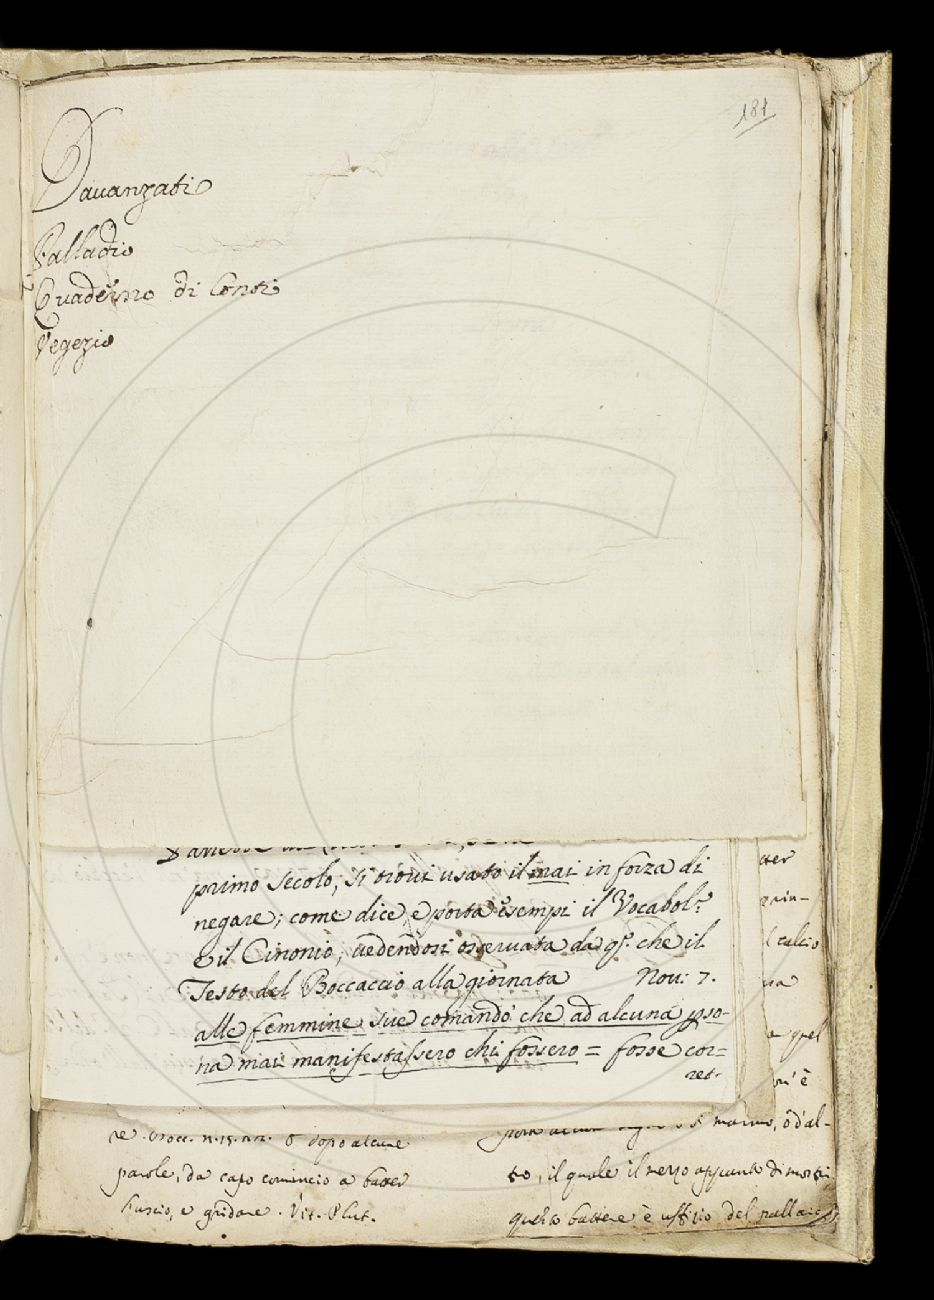 181
Davanzati
Palladio
Quaderno di Conti
Vegezio
primo secolo, si trovi usato il mai in forza di
negare; come dice, e porta esempi il Vocabol.º
e il Cinonio, vedendosi osservata da qº. che il
Testo del Boccaccio alla giornata Nov: 7.
alle femmine sue comandò che ad alcuna pso-
na mai manifestassero chi fossero = fosse cor=
ret-
tter
l calcio
na
a quel
è
re. Bocc. n.15. O dopo alcune
parole, da capo cominciò a batter
l'uscio, e gridare. Vit. Plut.
marmo, o d'al-
to, il quale il mezzo appunto dimostri
questo battere è ufizio del pallaio